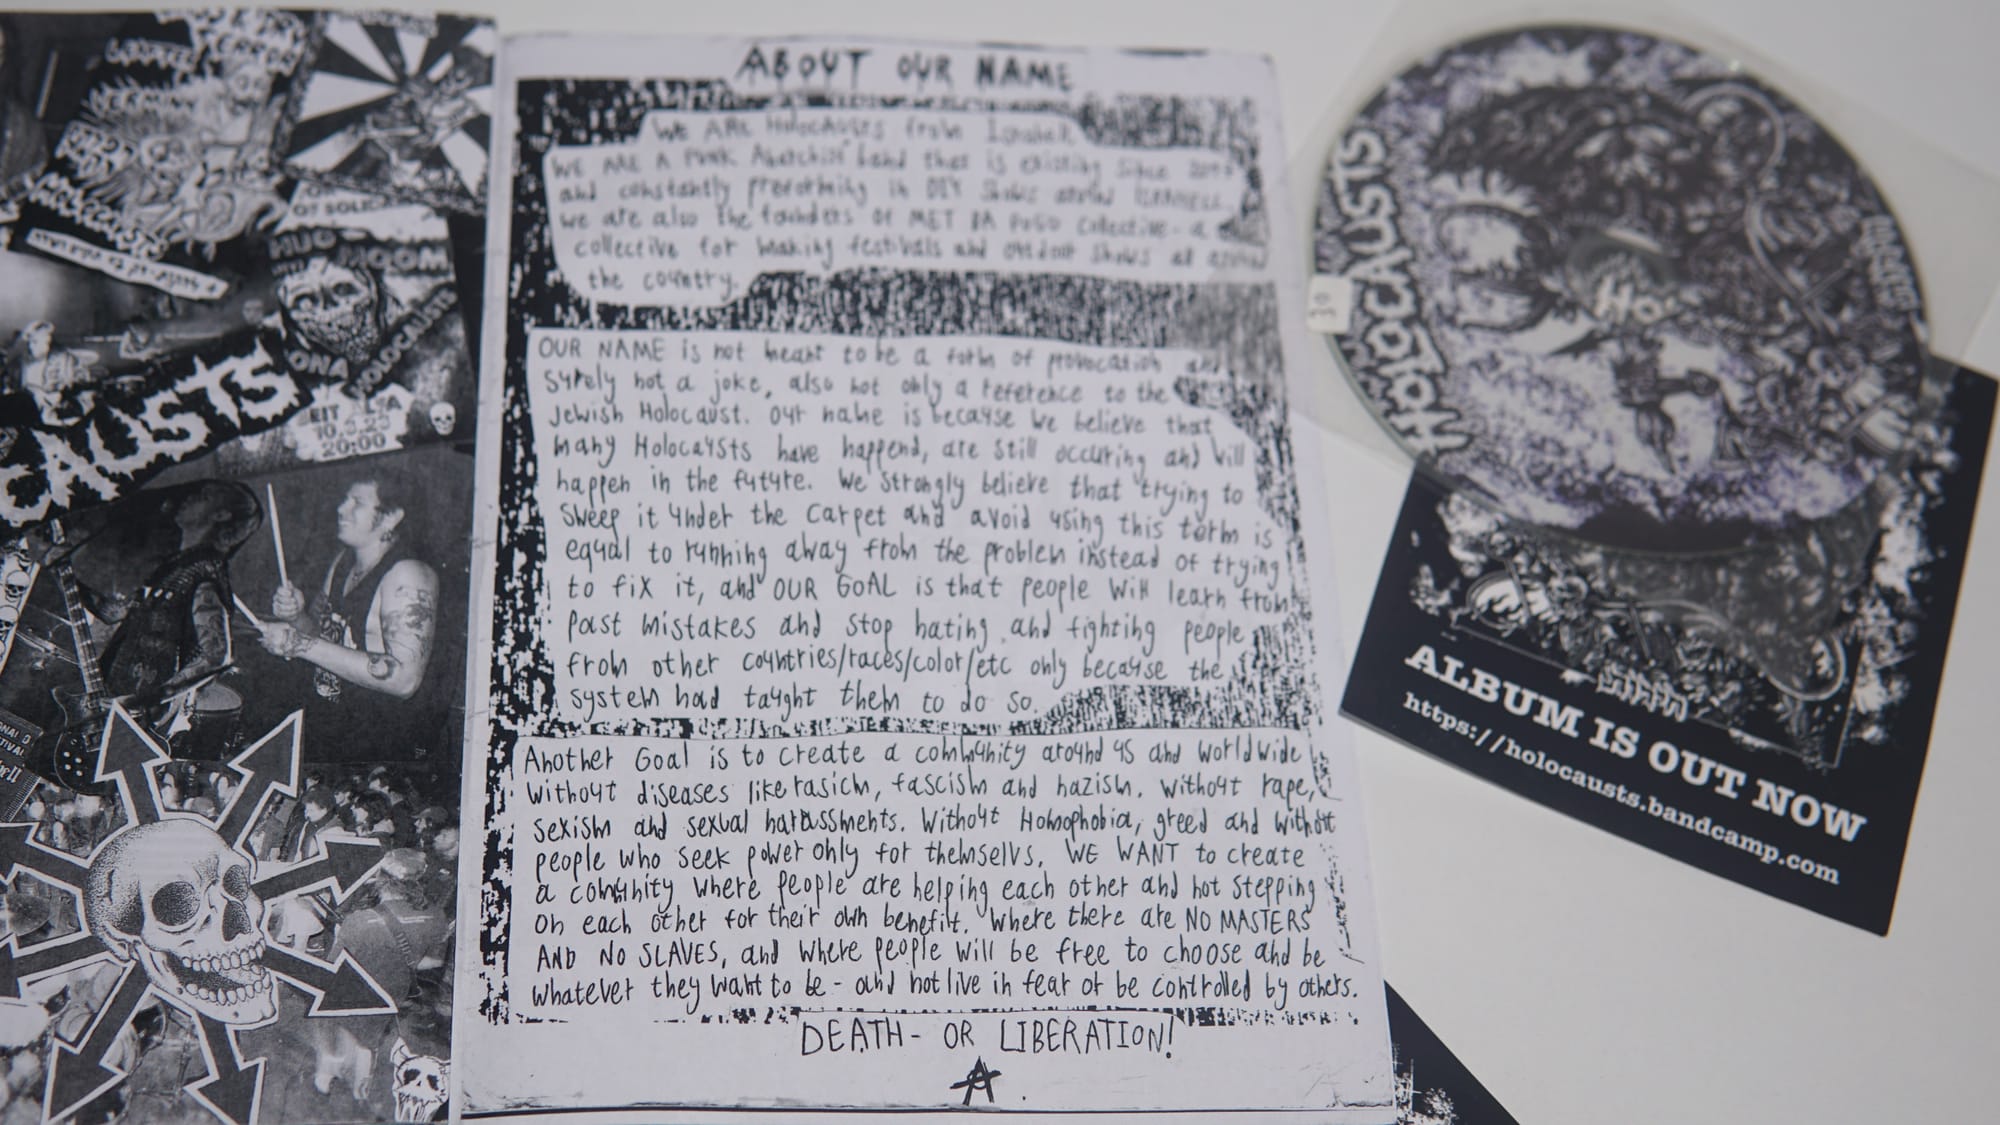 ABOUT OUR NAME
WE ARE Holocausts from Israhell,
WE ARE A PUNK Anarchist band that is existing since
and constantly preforming in DIY shows around ISRAHELL
we are also the founders of MET BA POGO Collective - a
collective for making festivals and outdoor shows al around
the country.
OUR NAME is not meant to be a form of provocation and
surely not a joke, also not only a reference to the
Jewish Holocaust. Our name is because we believe that
many Holocausts have happend, are still occuring and will
happen in the future. We strongly believe that trying to
sweep it under the carpet and avoid using this term is
equal to running away from the problem instead of trying
to fix it, and OUR GOAL is that people will learn from
past mistakes and stop hating and fighting people
from other countries/races/color/etc only because the
system had taught them to do so.
Another Goal is to create a community around us and worldwide
without diseases like rasicm, fascism and nazism. Without rape,
sexism and sexual harassments. Without Homophobia, greed and without
people who seek power only for themselvs. WE WANT to create
a community where people are helping each other and not stepping
on each other for their own benefit. Where there are NO MASTERS
AND NO SLAVES, and where people will be free to choose and be
whatever they want to be - and not live in fear or be controlled by others.
DEATH - OR LIBERATION!
HOLOCAUSTS
CAUSTS
HOLOCAUSTS
10.3.23
20:00
HOLOCAUSTS
39
ALBUM IS OUT NOW
https://holocausts.bandcamp.com